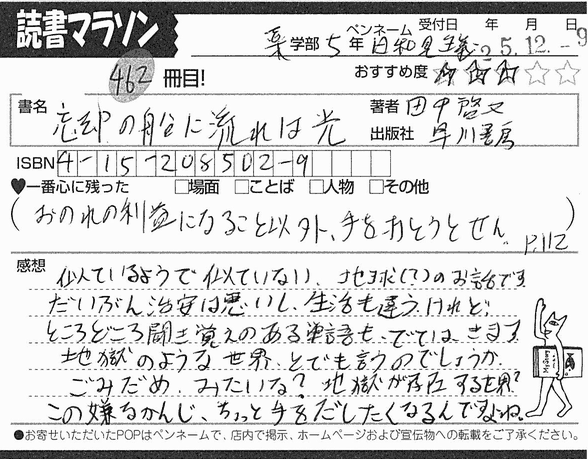 読書マラソン
薬学部 5年 ペンネーム 日和見主義 受付日 年 月 日
25.12.-9
462冊目!
おすすめ度 ★★★☆☆
書名 忘却の船に流れは光
著者 田中啓文
出版社 早川書房
ISBN 4-15-208502-9
♥一番心に残った □場面 □ことば □人物 □その他
(おのれの利益になること以外、手をおとうとせん。)
P.112
感想
似ているようで似ていない、地球(?)のお話です
だいぶん治安は悪いし、生活も違うけれど、
ところどころ聞き覚えのある単語も、でてはきます
地獄のような世界、とでも言うのでしょうか、
ごみだめ、みたいな?地獄が存在する世界?
この嫌なかんじ、ちょっと手をだしたくなるんですよね。
●お寄せいただいたPOPはペンネームで、店内で掲示、ホームページおよび宣伝物への転載をご了承ください。